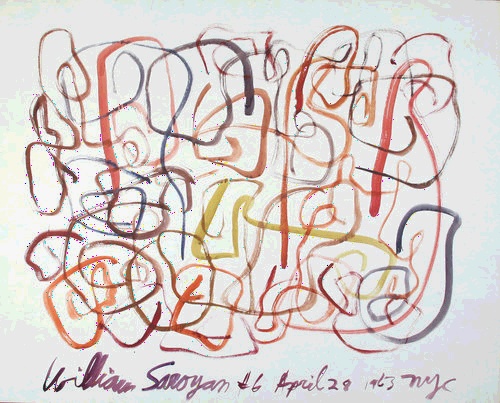 William Saroyan #6 April 28 1963 NYC